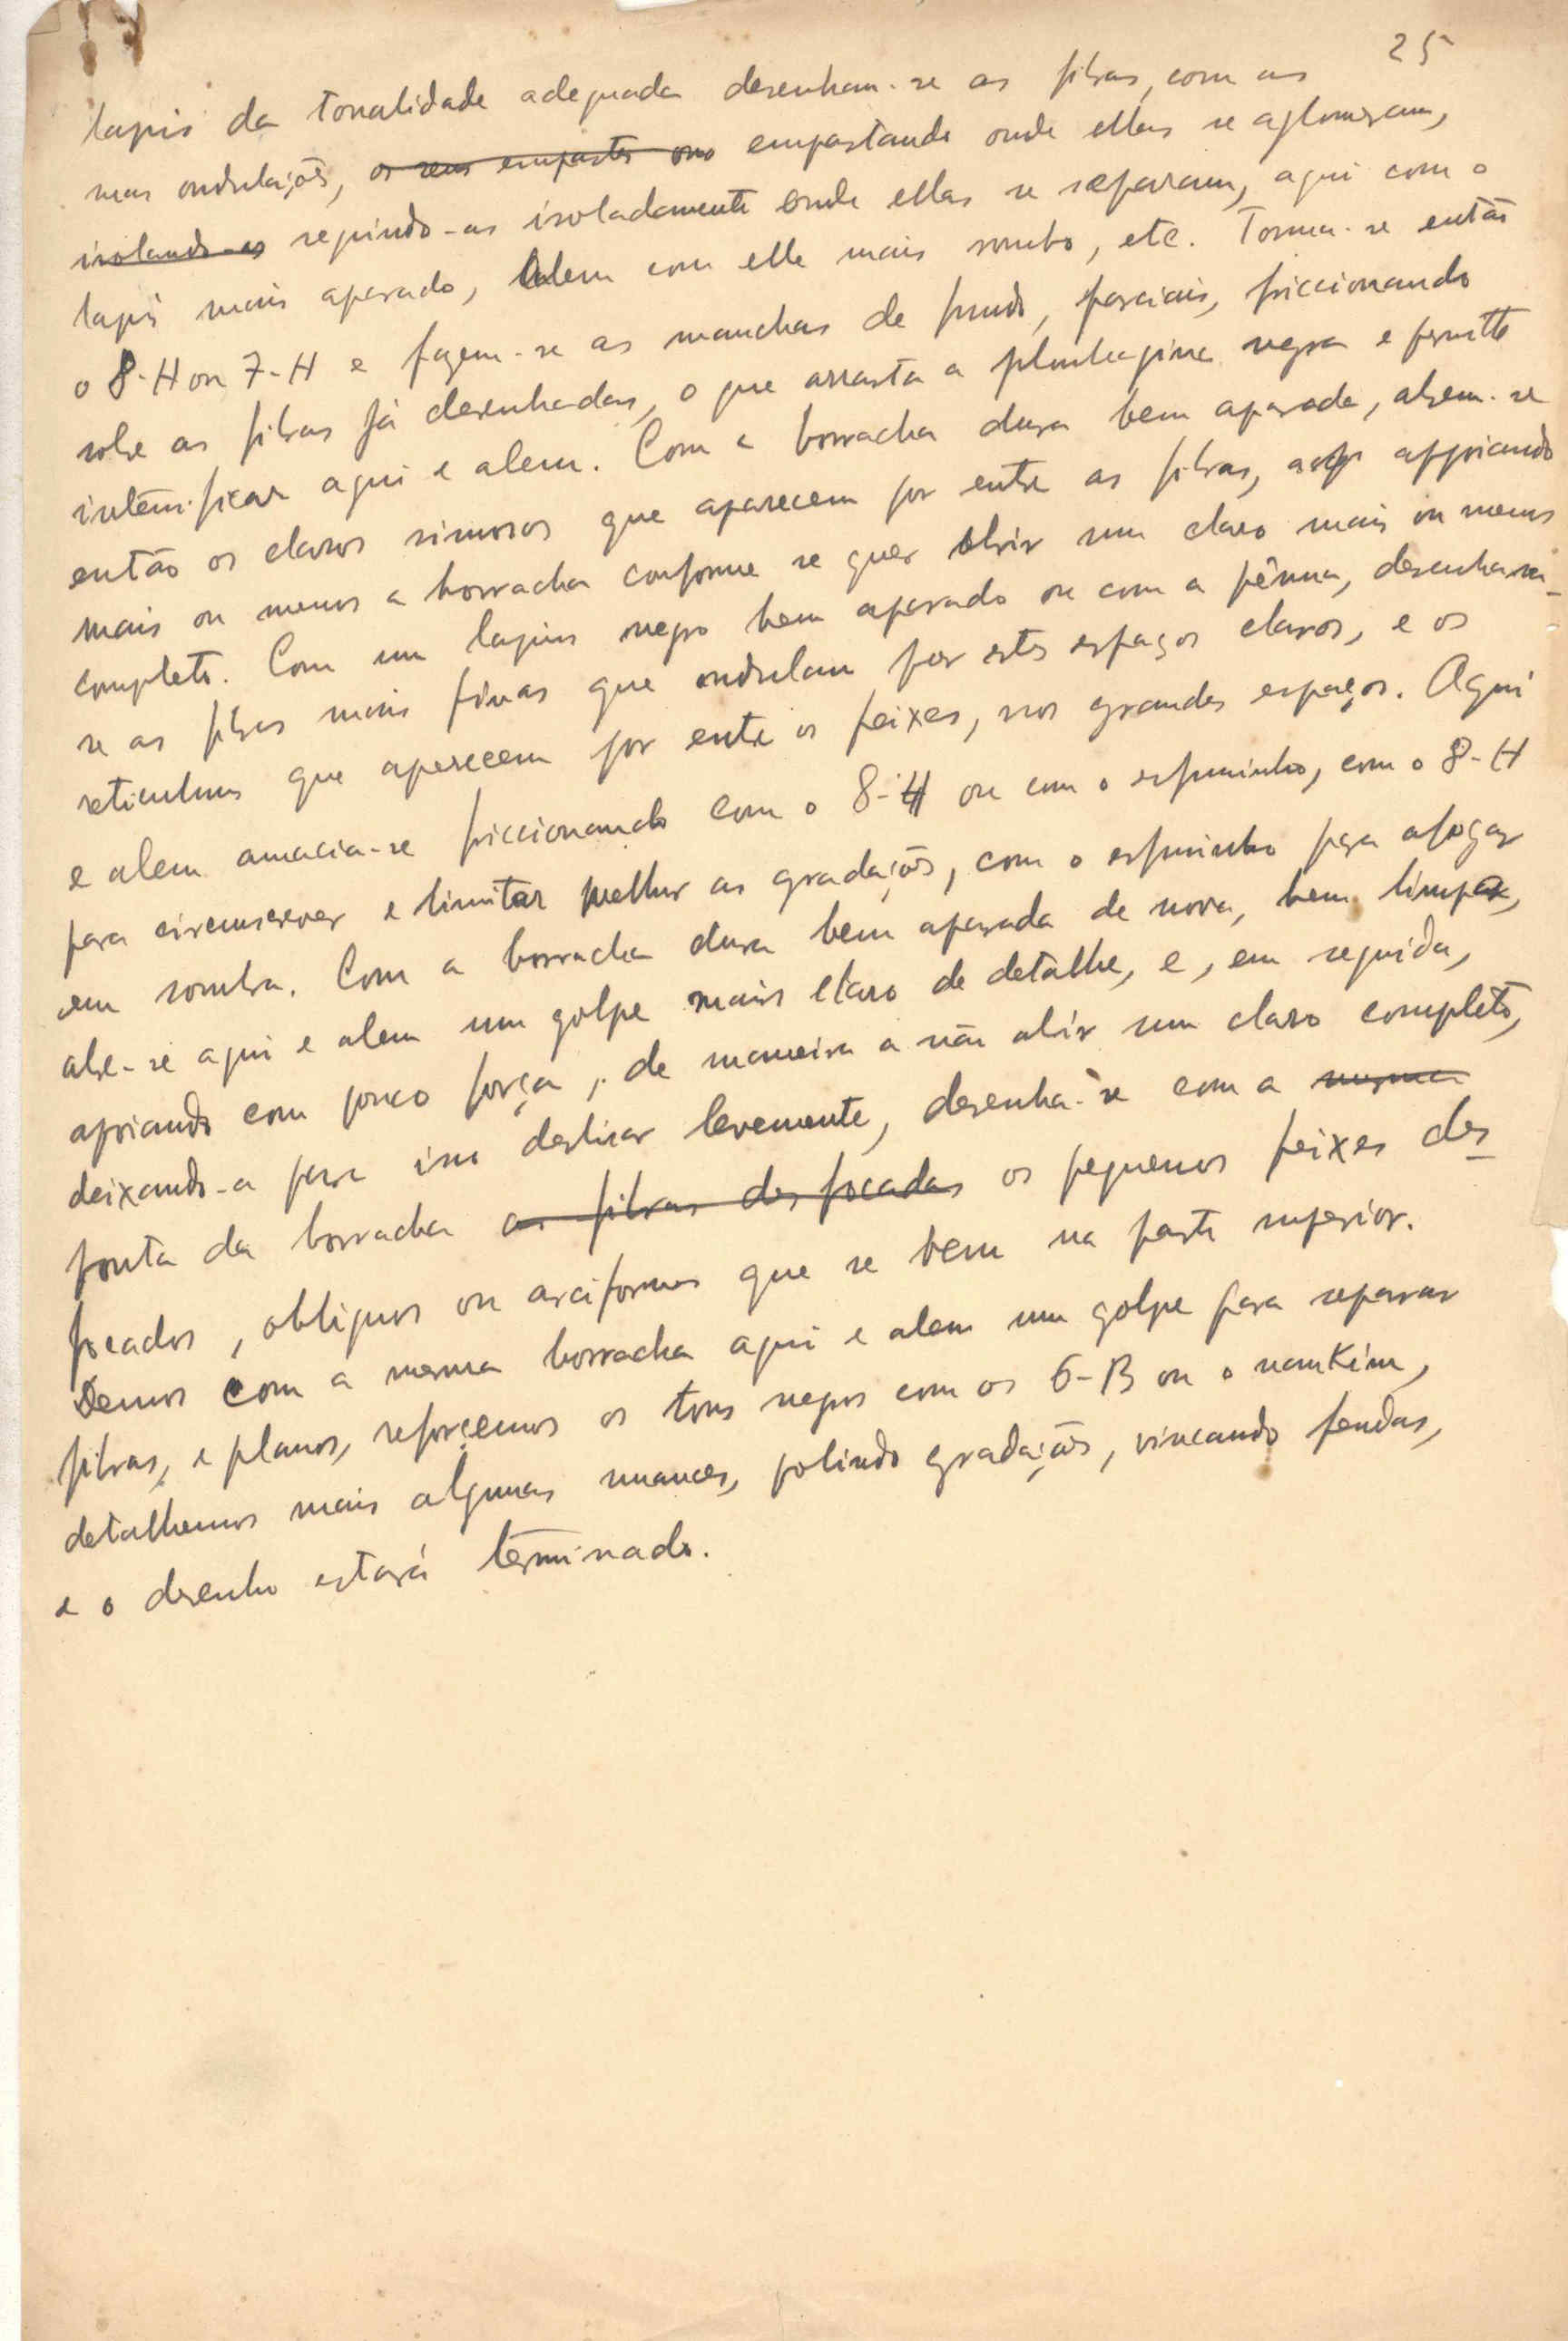 25
lapis da tonalidade adequada desenham-se as fibras, com as
suas ondulações, os seus empastes ono empastando onde ellas se aglomeram,
isolando-as seguindo-as isoladamente onde ellas se separam, aqui com o
lapis mais aparado, alem com elle mais rombo, etc. Toma-se então
o 8-H ou 7-H e fazem-se as manchas de fundo, parciais, friccionando
sobre as fibras já desenhadas, o que arrasta a plumbagina negra e permitte
intensificar aqui e alem. Com a borracha dura bem aparada, abrem-se
então os claros sinuosos que aparecem por entre as fibras, appoiando
mais ou menos a borracha conforme se quer abrir um claro mais ou menos
completo. Com um lapis negro bem aparado ou com a pênna, desenham-
se as fibras mais finas que ondulam por estes espaços claros, e os
reticuluns que aparecem por entre os feixes, nos grandes espaços. Aqui
e alem amacia-se friccionando com o 8-H ou com o esfuminho, com o 8-H
para circumscrever e limitar melhor as gradações, com o esfuminho para afogar
em sombra. Com a borracha dura bem aparada de nova, bem limpa,
abre-se aqui e alem um golpe mais claro de detalhe, e, em seguida,
apoiando com pouco força, de maneira a não abrir um claro completo,
deixando-a para isso deslisar levemente, desenha-se com a mesma
ponta da borracha as fibras desfocadas os pequenos feixes des-
focados, obliquos ou arciformes que se vem na parte superior.
Demos com a mesma borracha aqui e alem um golpe para separar
fibras, e planos, reforçemos os tons negros com os 6-B ou o nankim,
detalhemos mais algumas nuances, polindo gradações, vincando fendas,
e o desenho estará terminado.